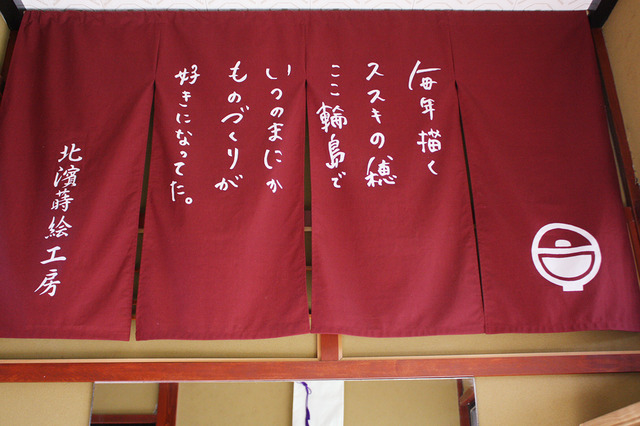 毎年描く
ススキの穂
ここ輪島で
いつのまにか
ものづくりが
好きになってた。
北濱蒔絵工房